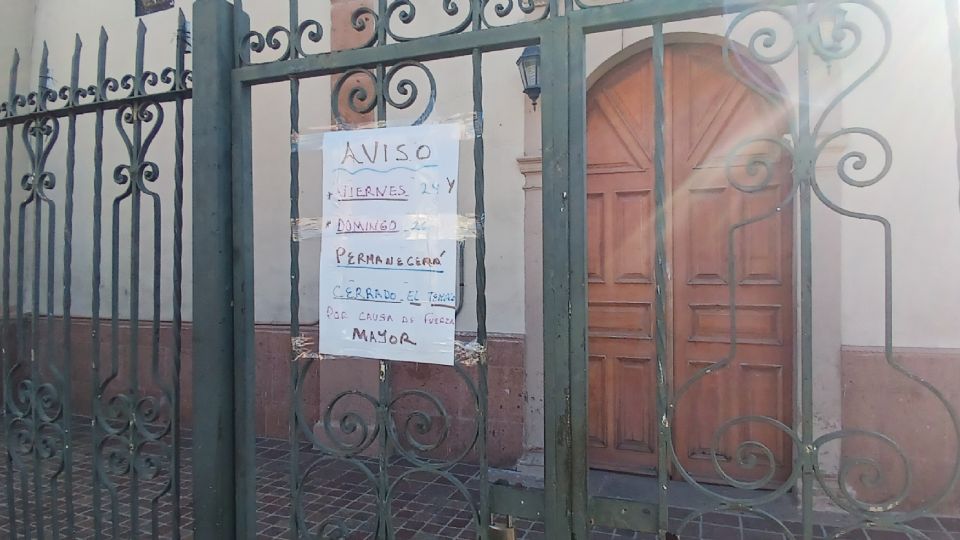 AVISO
* VIERNES 24 Y
* DOMINGO 26
PERMANECERÁ
CERRADO EL TEMPLO
POR CAUSA DE FUERZA
MAYOR